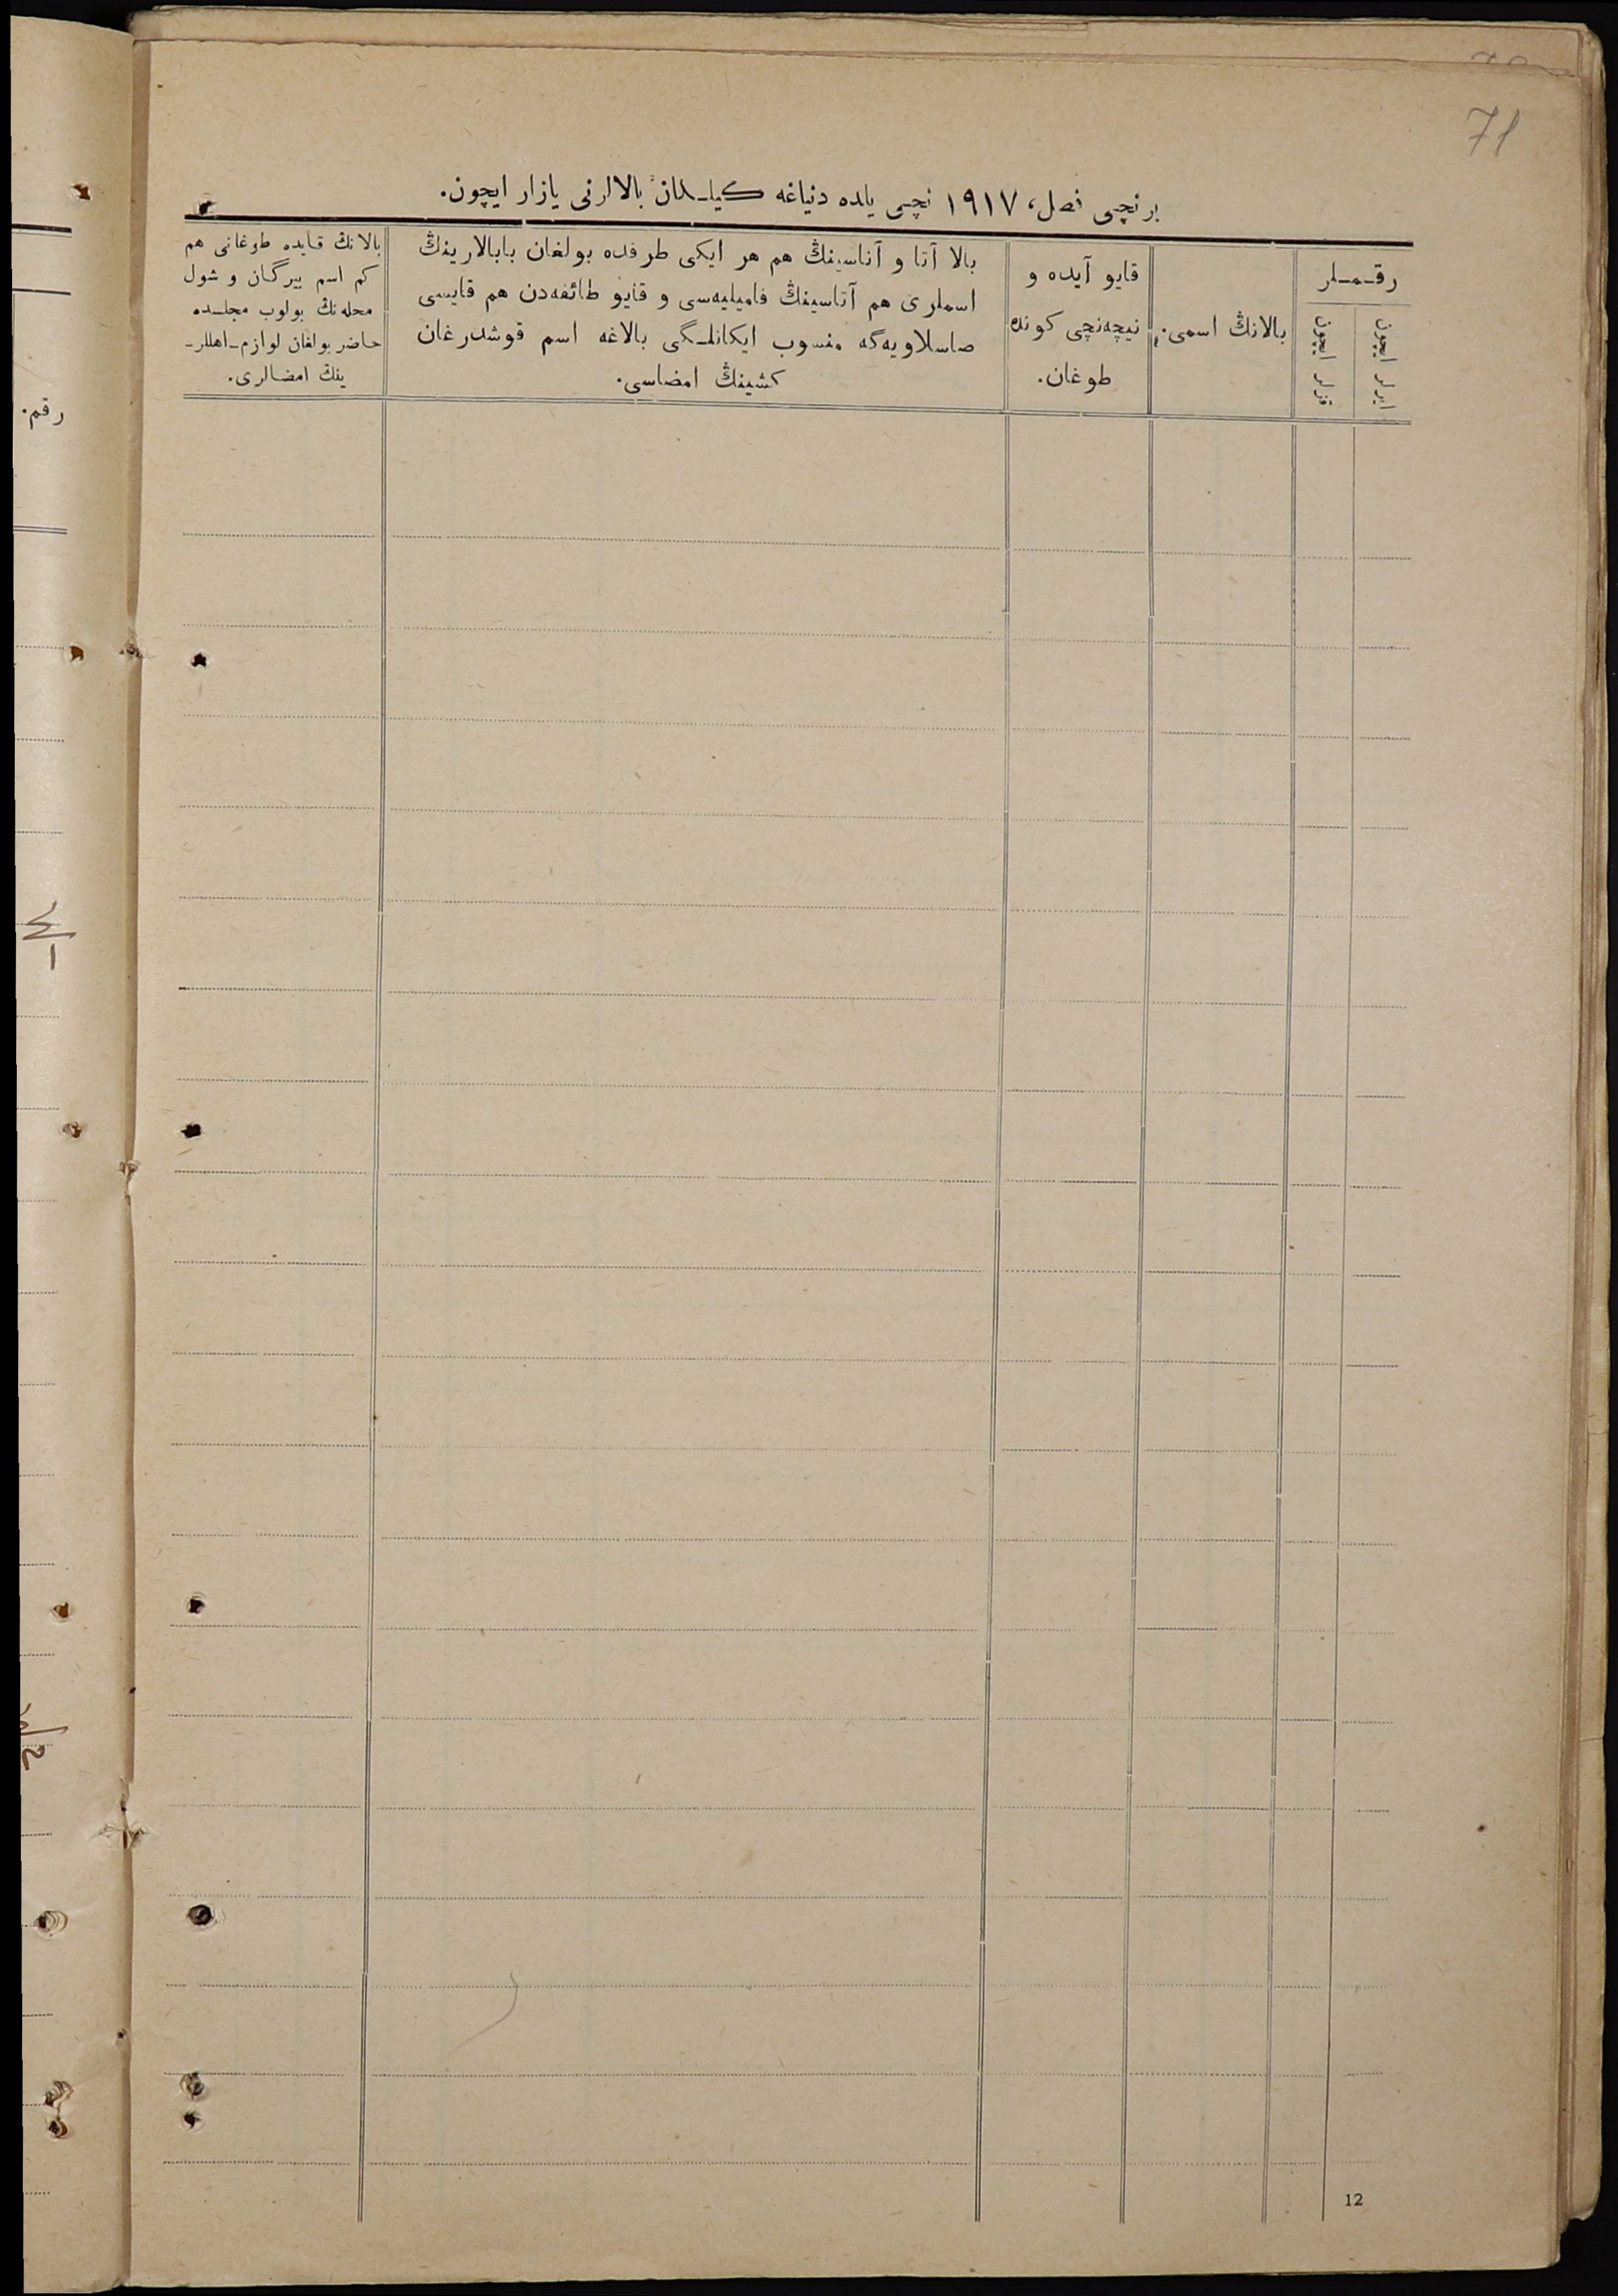 71
برنچی فصل، ١٩١٧ نچی یلده دنیاغه کیلـکان بالالرنی یازار ایچون.
رقـمـلر
ایرلر ایچون
قزلر ایچون
بالانڭ اسمی.
قایو آیده و
نیچه‌نچی کونده
طوغان.
بالا آتا و آناسینڭ هم هر ایکی طرفده بولغان بابالارینڭ
اسملری هم آتاسینڭ فامیلیه‌سی و قایو طائفه‌دن هم قایسی
صاسلاویه‌گه منسوب ایکانلـگی بالاغه اسم قوشدرغان
کشینڭ امضاسی.
بالانڭ قایده طوغانی هم
کم اسم بیرگان و شول
محله‌نڭ بولوب مجلـسده
حاضر بولغان لوازم-اهللر-
ینڭ امضالری.
رقم.
12